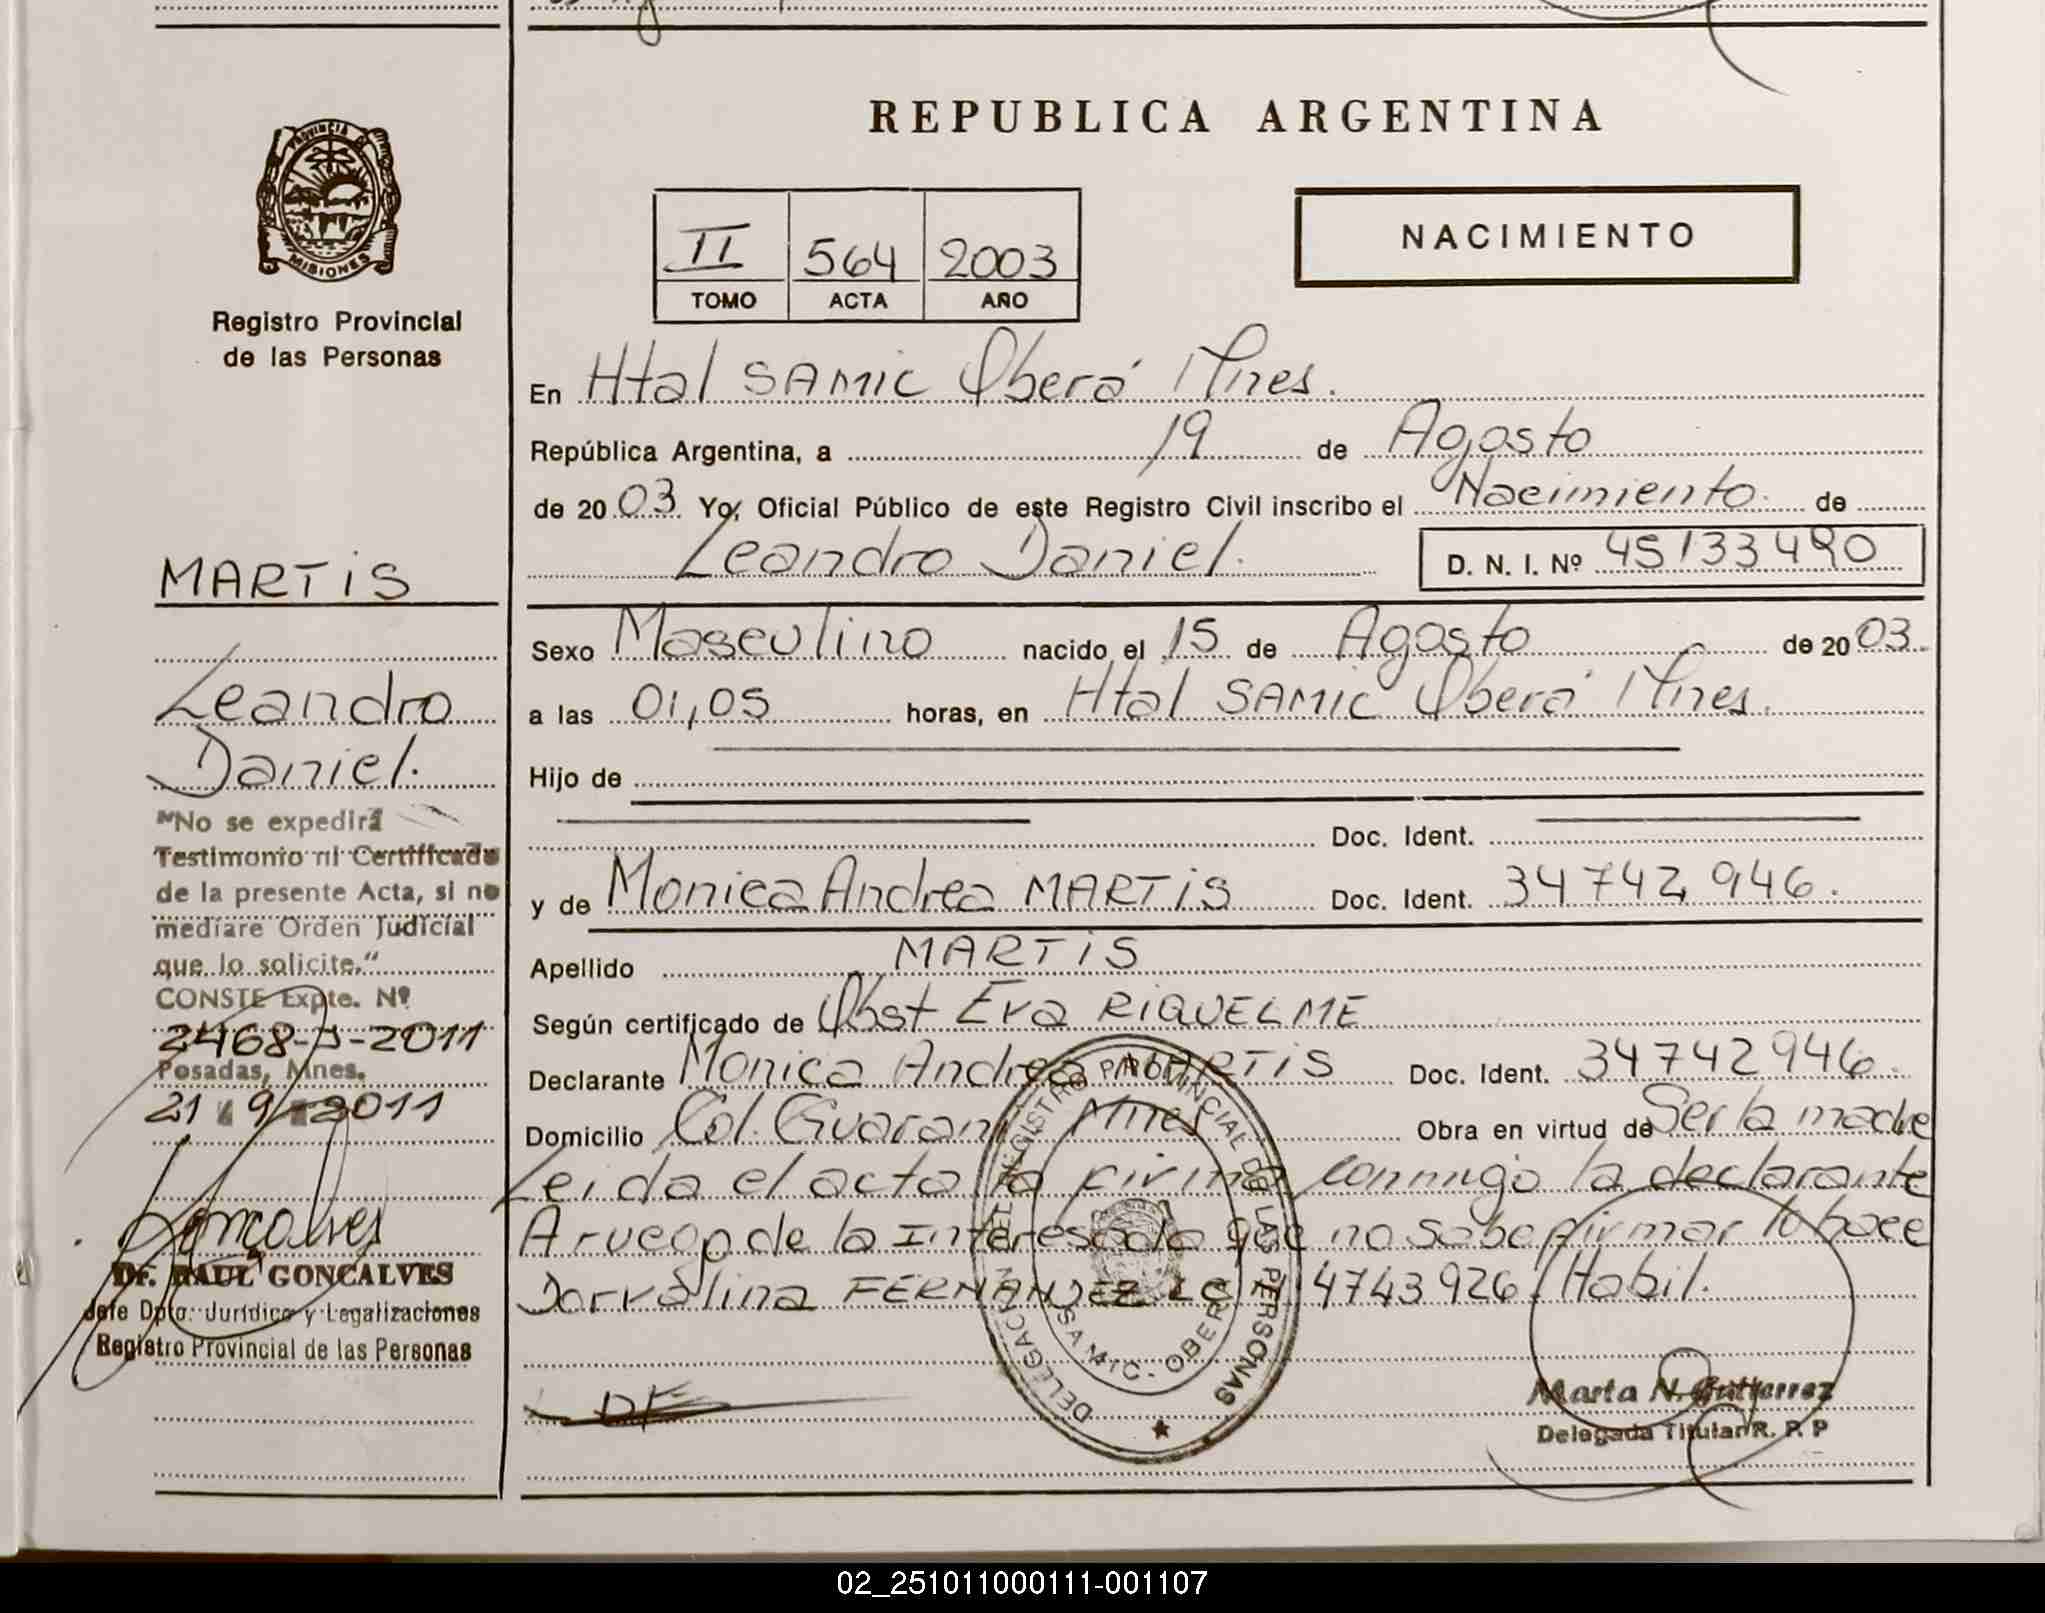 REPUBLICA ARGENTINA
PROVINCIA DE
MISIONES
Registro Provincial
de las Personas
II 564 2003
TOMO ACTA AÑO
NACIMIENTO
En Htal SAMIC Oberá Mnes.
República Argentina, a 19 de Agosto
de 2003 Yo, Oficial Público de este Registro Civil inscribo el Nacimiento de
Leandro Daniel.
D. N. I. Nº 45133490
Sexo Masculino nacido el 15 de Agosto de 2003.
a las 01,05 horas, en Htal SAMIC Oberá Mnes.
Hijo de
Doc. Ident.
y de Monica Andrea MARTiS Doc. Ident. 34742946.
Apellido MARTiS
Según certificado de Obst Eva RiQUELME
Declarante Monica Andrea MARTiS Doc. Ident. 34742946.
Domicilio Col. Guarani Mnes Obra en virtud de Ser la madre
Leida el acta la firma conmigo la declarante
A ruego de la Interesada que no sabe firmar lo hace
Dorvalina FERNANDEZ LC 4743926 Habil.
DF
DELEGACION DEL REGISTRO PROVINCIAL DE LAS PERSONAS
SAMIC - OBERA
Marta N. Gutierrez
Delegada Titular R. P. P
MARTiS
Leandro
Daniel.
"No se expedirá
Testimonio ni Certificado
de la presente Acta, si no
mediare Orden Judicial
que lo solicite."
CONSTE Expte. Nº
2468-J-2011
Posadas, Mnes.
21 9 2011
Gonçalves
Dr. RAUL GONCALVES
Jefe Dpto. Jurídico y Legalizaciones
Registro Provincial de las Personas
02_251011000111-001107